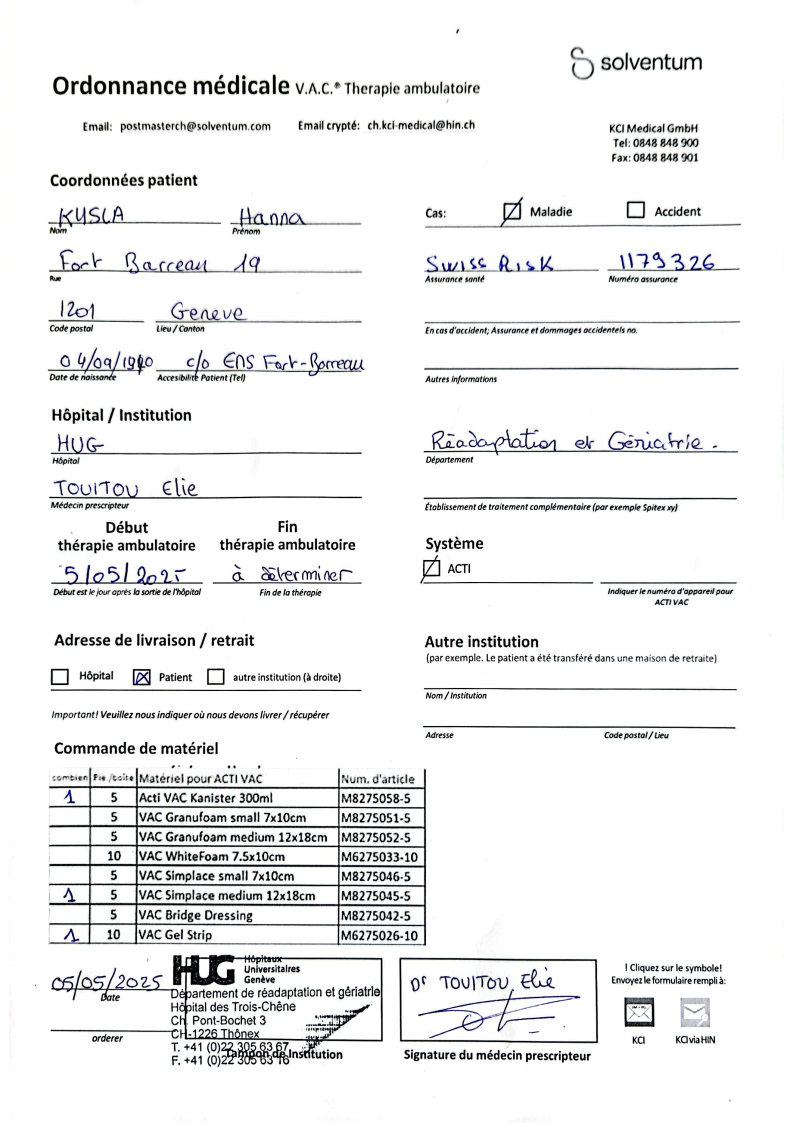 solventum
Ordonnance médicale V.A.C.® Therapie ambulatoire
Email: postmasterch@solventum.com Email crypté: ch.kci-medical@hin.ch
KCI Medical GmbH
Tel: 0848 848 900
Fax: 0848 848 901
Coordonnées patient
KYSLA Hanna
Nom Prénom
Cas: Maladie Accident
Fort Barreau 19
Rue
Swiss Risk 1179326
Assurance santé Numéro assurance
1201 Geneve
Code postal Lieu / Canton
En cas d'accident; Assurance et dommages accidentels no.
04/09/1940 c/o EMS Fort-Barreau
Date de naissance Accesibilité Patient (Tel)
Autres informations
Hôpital / Institution
HUG
Hôpital
Réadaptation et Gériatrie.
Département
TOUITOU Elie
Médecin prescripteur
Établissement de traitement complémentaire (par exemple Spitex xy)
Début thérapie ambulatoire
Fin thérapie ambulatoire
5/05/2025 à déterminer
Début est le jour après la sortie de l'hôpital Fin de la thérapie
Système
ACTI
Indiquer le numéro d'appareil pour ACTI VAC
Adresse de livraison / retrait
Hôpital Patient autre institution (à droite)
Important! Veuillez nous indiquer où nous devons livrer / récupérer
Autre institution
(par exemple. Le patient a été transféré dans une maison de retraite)
Nom / Institution
Adresse Code postal / Lieu
Commande de matériel
combien Pie./boîte Matériel pour ACTI VAC Num. d'article
1 5 Acti VAC Kanister 300ml M8275058-5
5 VAC Granufoam small 7x10cm M8275051-5
5 VAC Granufoam medium 12x18cm M8275052-5
10 VAC WhiteFoam 7.5x10cm M6275033-10
5 VAC Simplace small 7x10cm M8275046-5
1 5 VAC Simplace medium 12x18cm M8275045-5
5 VAC Bridge Dressing M8275042-5
1 10 VAC Gel Strip M6275026-10
05/05/2025
Date
orderer
HUG Hôpitaux
Universitaires
Genève
Département de réadaptation et gériatrie
Hôpital des Trois-Chêne
Ch. Pont-Bochet 3
CH-1226 Thônex
T. +41 (0)22 305 63 67
F. +41 (0)22 305 63 16
Tampon de Institution
Dr TOUITOU Elie
Signature du médecin prescripteur
! Cliquez sur le symbole!
Envoyez le formulaire rempli à:
KCI KCI via HIN